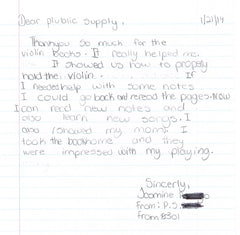 Dear plublic Supply, 1/21/14
Thankyou so much for the
violin books. It really helped me.
It showed us how to properly
hold the violin. If
I needed help with some notes
I could go back and reread the pages. Now
I can read new notes and
also learn new songs. I
also showed my mom I
took the book home and they
were impressed with my playing.
Sincerly,
Jasmine
From: P.S.
From 8301